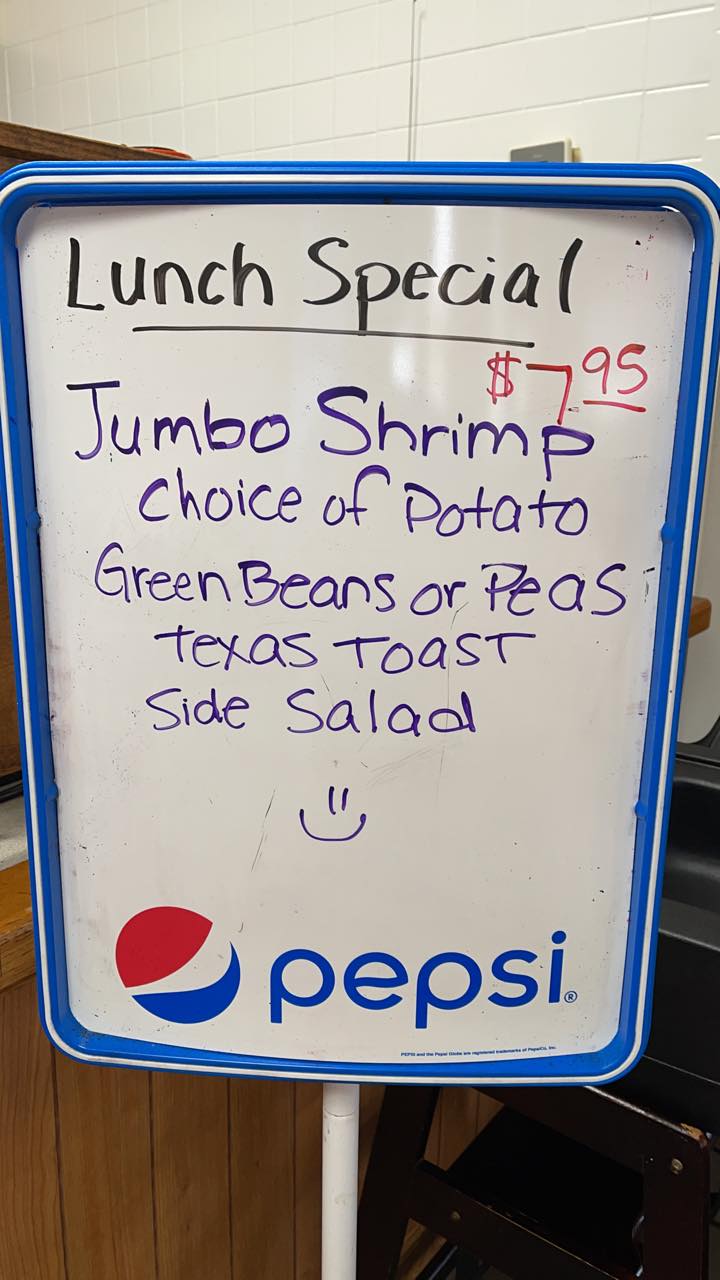 Lunch Special
$7.95
Jumbo Shrimp
Choice of Potato
Green Beans or Peas
Texas Toast
Side Salad
pepsi®
PEPSI and the Pepsi Globe are registered trademarks of PepsiCo, Inc.